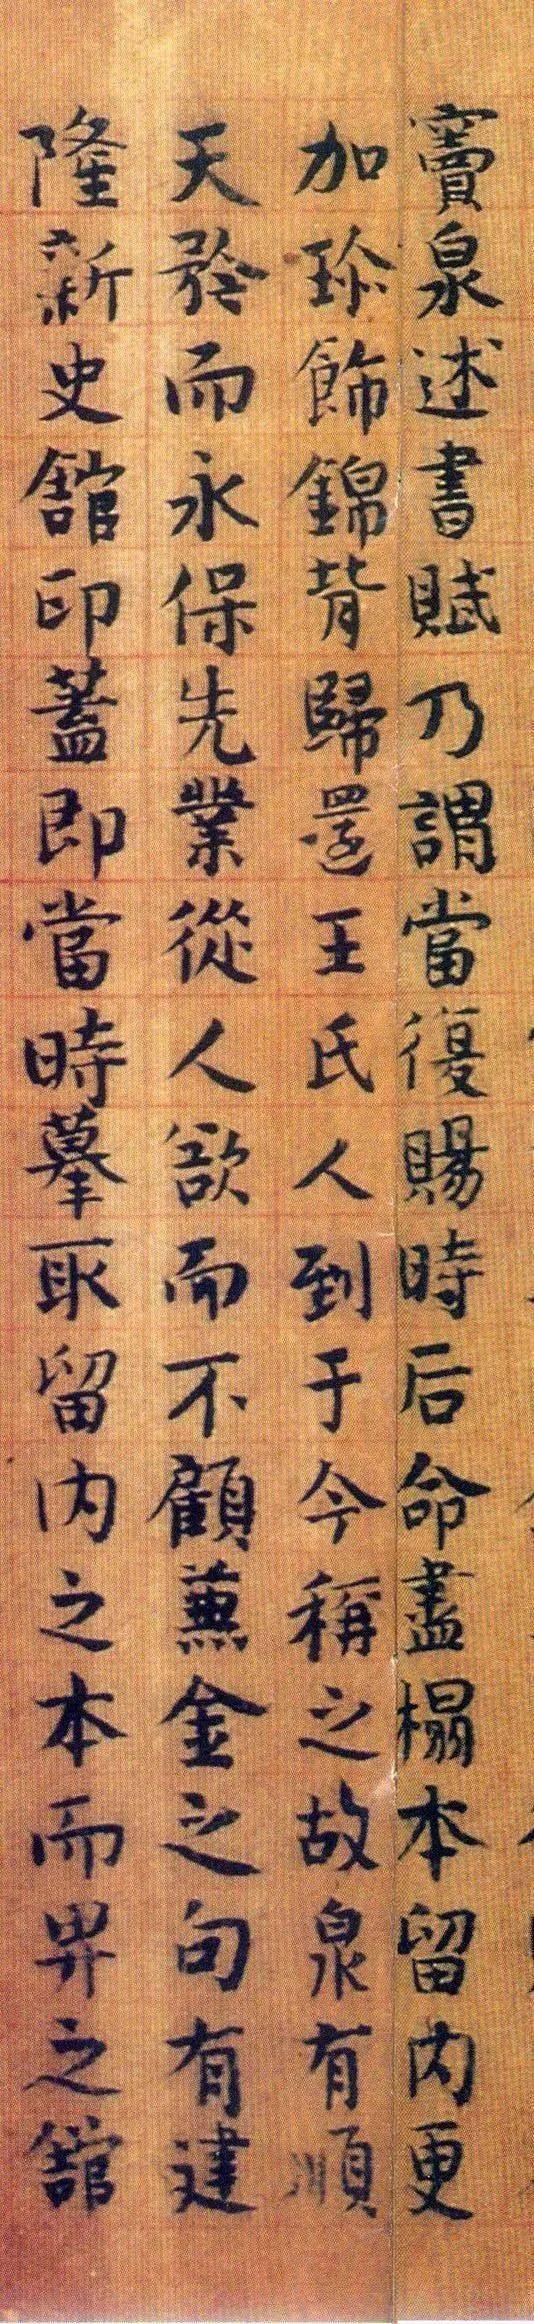 竇泉述書賦乃謂當復賜時后命盡榻本留内更
加珍飾錦背歸還王氏人到于今稱之故泉有順
天矜而永保先業從人欲而不顧兼金之句有建
隆新史舘印蓋即當時摹取留内之本而畀之舘